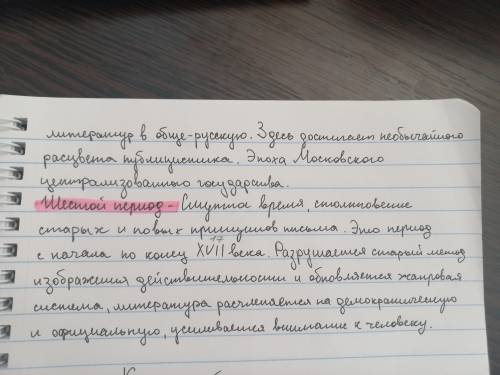 литератур в обще-русскую. Здесь достигает необычайного
расцвета публицистика. Эпоха Московского
централизованного государства.
Шестой период - Смутное время, столкновение
старых и новых принципов письма. Это период
с начала по конец XVII 17 века. Разрушается старый метод
изображения действительности и обновляется жанровая
система, литература расчленяется на демократическую
и официальную, усиливается внимание к человеку.